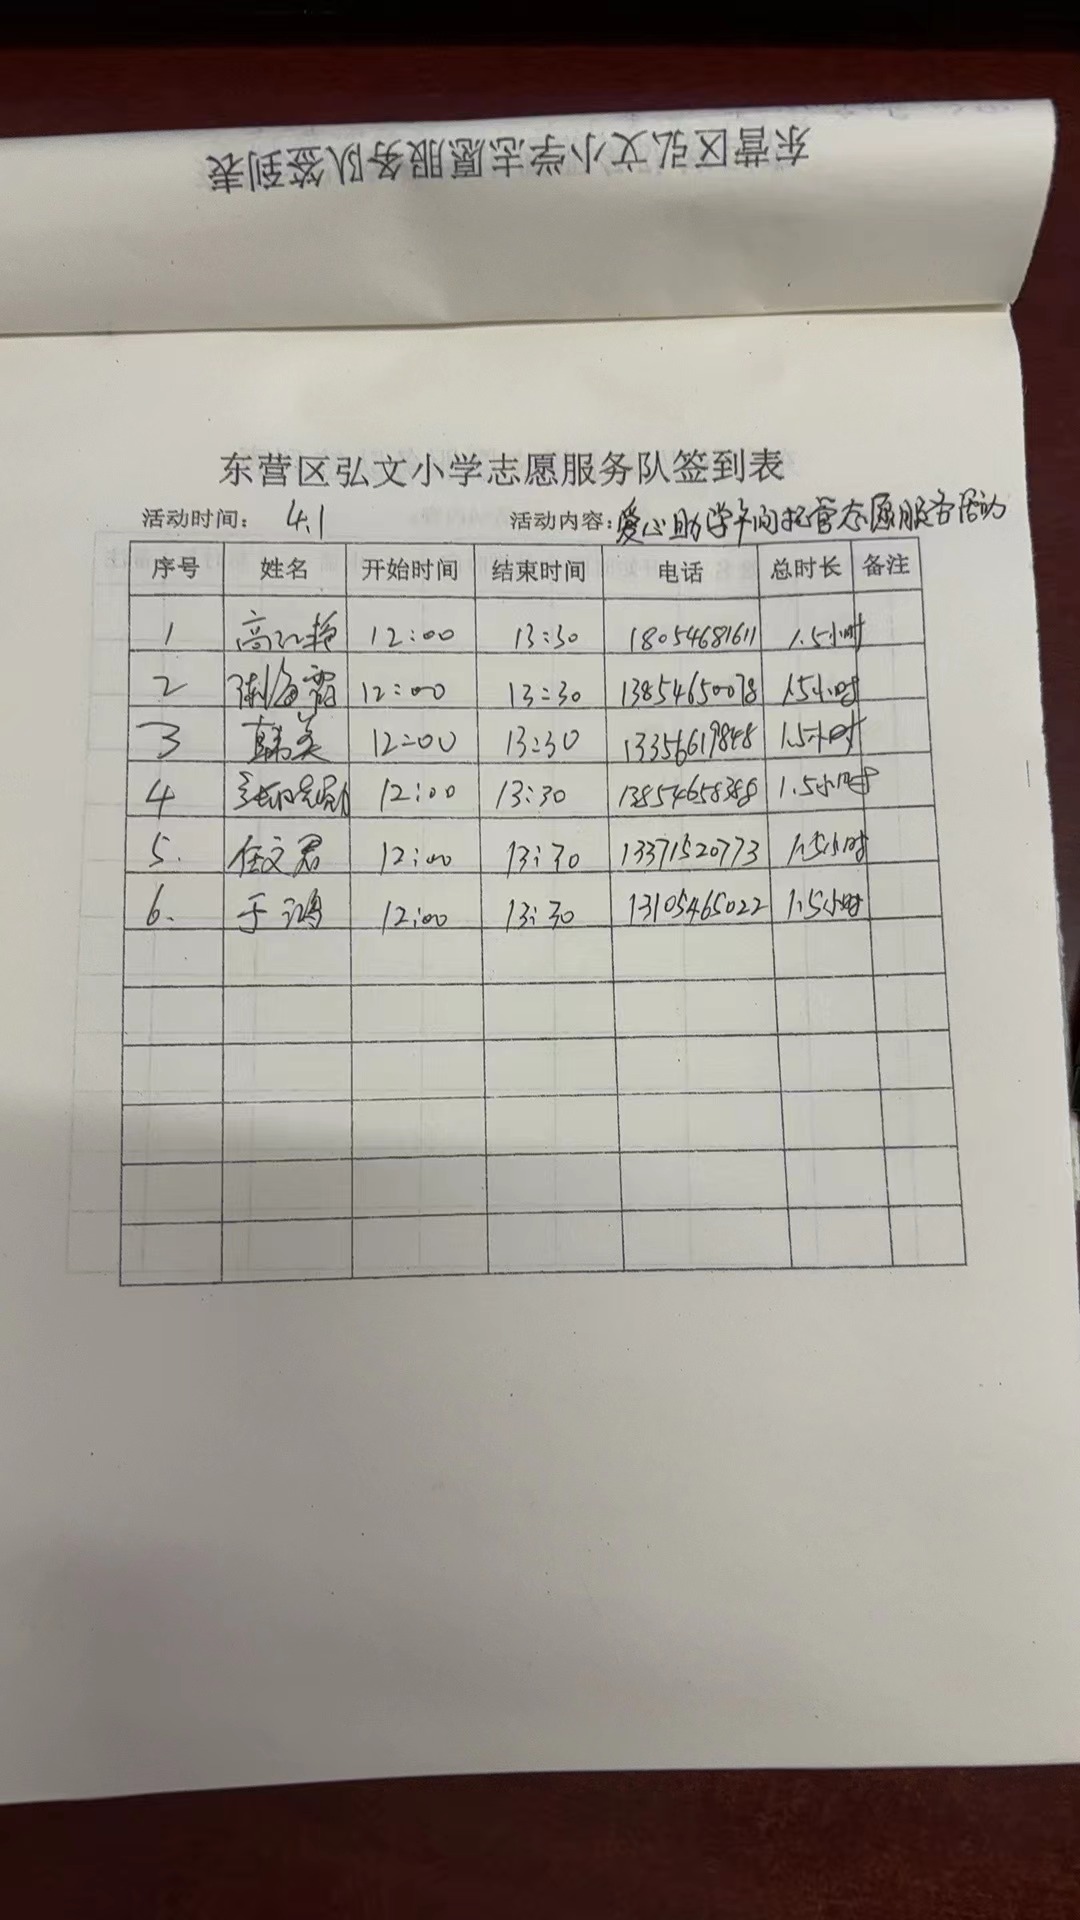 东营区弘文小学志愿服务队签到表
东营区弘文小学志愿服务队签到表
活动时间: 4.1 活动内容:爱心助学午间托管志愿服务活动
序号 姓名 开始时间 结束时间 电话 总时长 备注
1 高红艳 12:00 13:30 18054681611 1.5小时
2 海霞 12:00 13:30 13854650078 1.5小时
3 韩美 12:00 13:30 13356619848 1.5小时
4 12:00 13:30 13854658388 1.5小时
5. 任文君 12:00 13:30 13371520773 1.5小时
6. 于鸿 12:00 13:30 13105465022 1.5小时